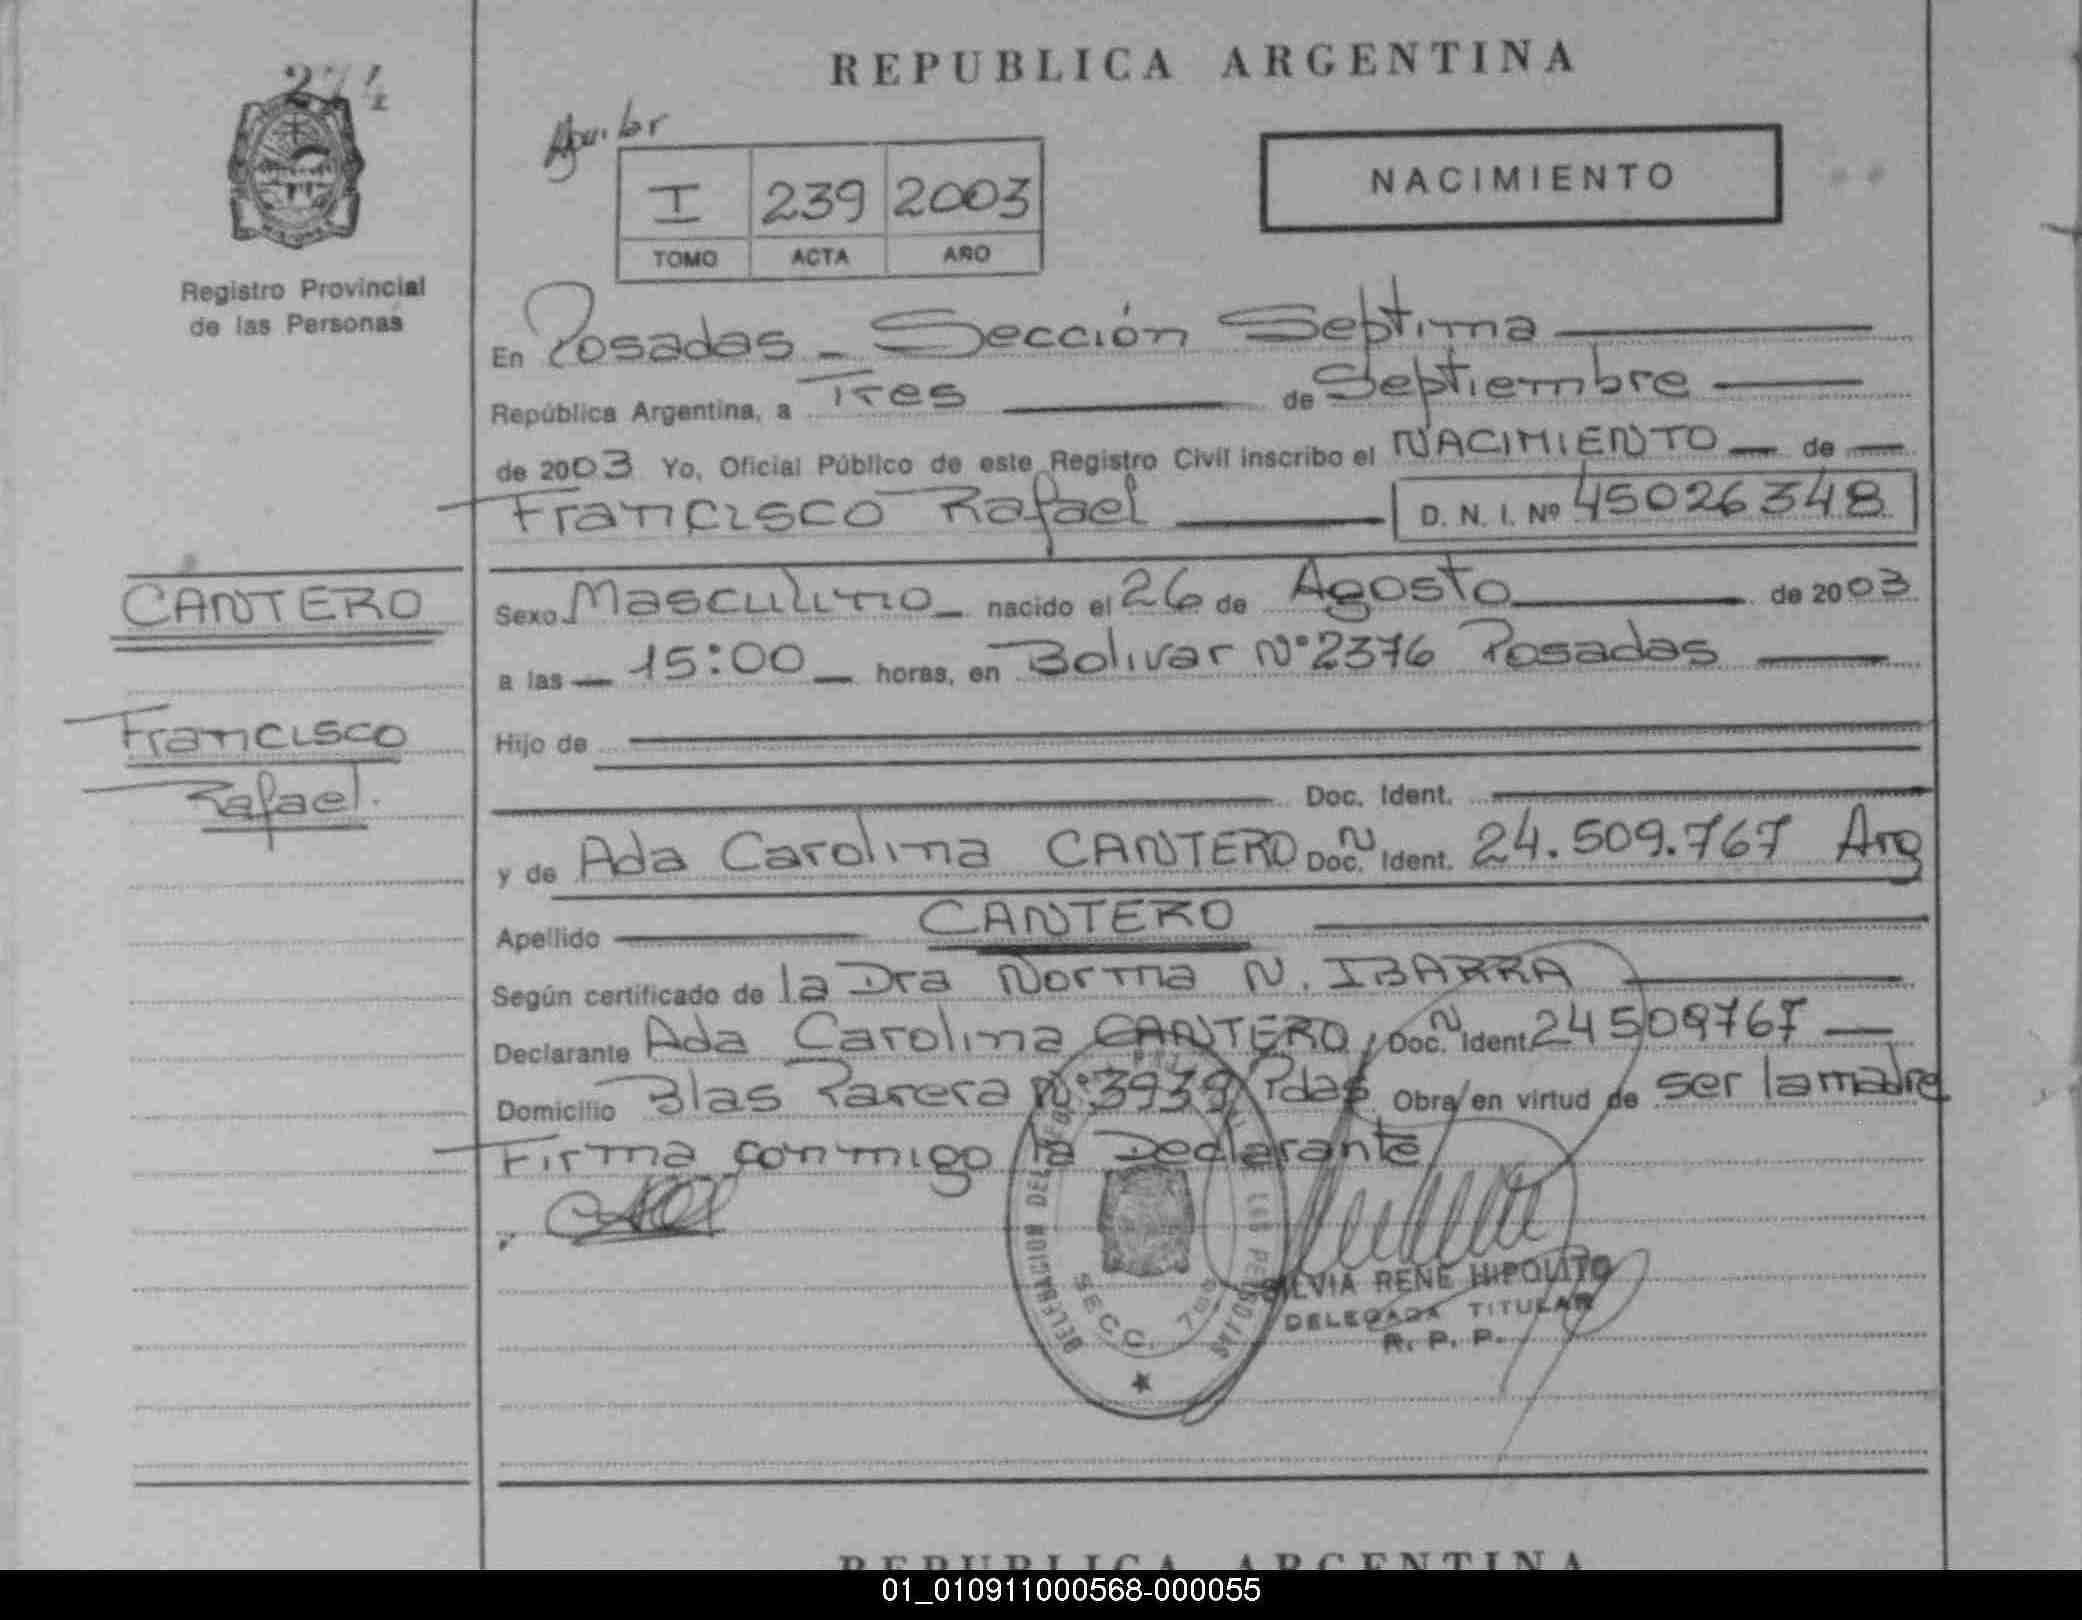 REPUBLICA ARGENTINA
274
Aguilar
I 239 2003
TOMO ACTA AÑO
NACIMIENTO
Registro Provincial
de las Personas
En Posadas - Sección Septima
República Argentina, a Tres de Septiembre
de 2003 Yo, Oficial Público de este Registro Civil inscribo el NACIMIENTO de
Francisco Rafael D. N. I. Nº 45026348
CANTERO
Sexo Masculino nacido el 26 de Agosto de 2003
a las 15:00 horas, en Bolivar Nº 2376 Posadas
Francisco
Rafael.
Hijo de
Doc. Ident.
y de Ada Carolina CANTERO Doc. N Ident. 24.509.767 Arg
Apellido CANTERO
Según certificado de la Dra Norma N. IBARRA
Declarante Ada Carolina CANTERO, Doc. N Ident. 24509767
Domicilio Blas Parera Nº 3939 Pdas Obra en virtud de ser la madre
Firma conmigo la Declarante
DELEGACION DEL LAS PERSONAS
SECC. 7ma
SILVIA RENE HIPOLITO
DELEGADA TITULAR
R. P. P.
REPUBLICA ARGENTINA
01_010911000568-000055